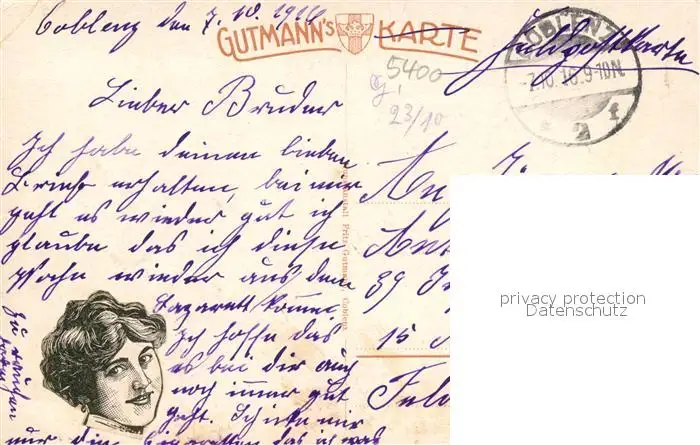 Coblenz den 7.10.1916
GUTMANN'S KARTE
Feldpostkarte
COBLENZ
7.10.16.9-10N.
* 2 f
5400
23/10
Lieber Bruder
Ich habe deinen lieben
Brief erhalten, bei mir
geht es wieder gut ich
glaube das ich diese
Woche wieder aus dem
Lazarett komme
Ich hoffe das
es bei dir auch
noch immer gut
geht. Ich
nur die Cigaretten das ich was
zu rauchen
An
39
15
Feld
Kunstanstalt Fritz Gutmann, Coblenz
privacy protection
Datenschutz